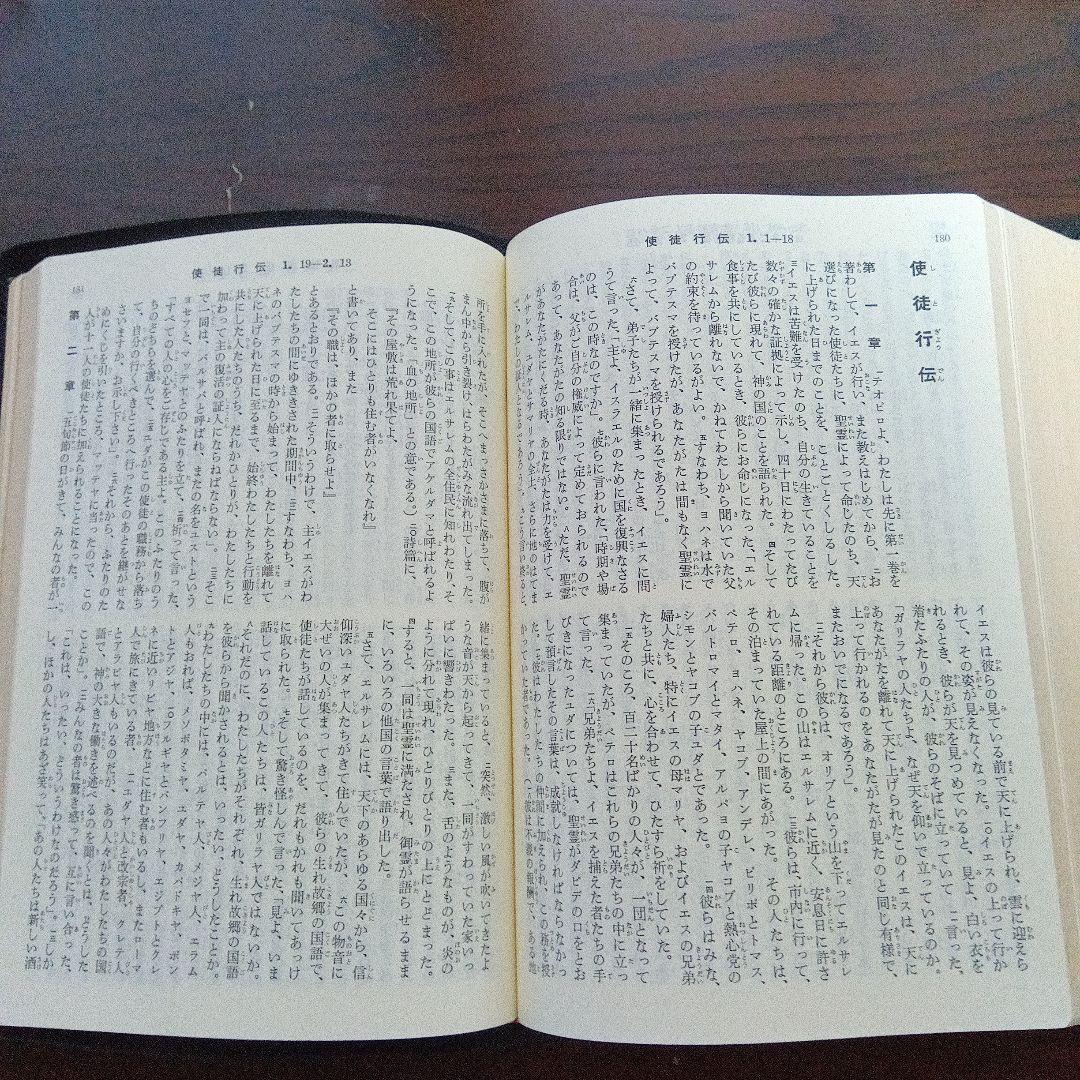 180
使徒行伝 1. 1―18
使徒行伝
第一章 一テオピロよ、わたしは先に第一巻を
著わして、イエスが行い、また教えはじめてから、二お
選びになった使徒たちに、聖霊によって命じたのち、天
に上げられた日までのことを、ことごとくしるした。
三イエスは苦難を受けたのち、自分の生きていることを
数々の確かな証拠によって示し、四十日にわたってたび
たび彼らに現れて、神の国のことを語られた。四そして
食事を共にしているとき、彼らにお命じになった、「エル
サレムから離れないで、かねてわたしから聞いていた父
の約束を待っているがよい。五すなわち、ヨハネは水で
バプテスマを授けたが、あなたがたは間もなく聖霊に
よって、バプテスマを授けられるであろう」。
六さて、弟子たちが一緒に集まったとき、イエスに問
うて言った、「主よ、イスラエルのために国を復興なさる
のは、この時なのですか」。七彼らに言われた、「時期や場
合は、父がご自分の権威によって定めておられるので
あって、あなたがたの知る限りではない。八ただ、聖霊
があなたがたにくだる時、あなたがたは力を受けて、エ
ルサレム、ユダヤとサマリヤの全土、さらに地のはてま
イエスは彼らの見ている前で天に上げられ、雲に迎えら
れて、その姿が見えなくなった。一〇イエスの上って行か
れるとき、彼らが天を見つめていると、見よ、白い衣を
着たふたりの人が、彼らのそばに立っていて一一言った、
「ガリラヤの人たちよ、なぜ天を仰いで立っているのか。
あなたがたを離れて天に上げられたこのイエスは、天に
上って行かれるのをあなたがたが見たのと同じ有様で、
またおいでになるであろう」。
一二それから彼らは、オリブという山を下ってエルサレ
ムに帰った。この山はエルサレムに近く、安息日に許さ
れている距離のところにある。一三彼らは、市内に行って、
その泊まっていた屋上の間にあがった。その人たちは、
ペテロ、ヨハネ、ヤコブ、アンデレ、ピリポとトマス、
バルトロマイとマタイ、アルパヨの子ヤコブと熱心党の
シモンとヤコブの子ユダとであった。一四彼らはみな、
婦人たち、特にイエスの母マリヤ、およびイエスの兄弟
たちと共に、心を合わせて、ひたすら祈をしていた。
一五そのころ、百二十名ばかりの人々が、一団となって
集まっていたが、ペテロはこれらの兄弟たちの中に立っ
て言った、一六「兄弟たちよ、イエスを捕えた者たちの手
びきになったユダについては、聖霊がダビデの口をとお
して預言したその言葉は、成就しなければならなかっ
た。一七彼はわたしたちの仲間に加えられ、この務を授
かっていた者であった。一八(彼は不義の報酬で、ある地
使徒行伝 1. 19―2. 13
181
所を手に入れたが、そこへまっさかさまに落ちて、腹が
まん中から引き裂け、はらわたがみな流れ出てしまった。
一九そして、この事はエルサレムの全住民に知れわたり、そ
こで、この地所が彼らの国語でアケルダマと呼ばれるよ
うになった。「血の地所」との意である。)二〇詩篇に、
『その屋敷は荒れ果てよ、
そこにはひとりも住む者がいなくなれ』
と書いてあり、また
『その職は、ほかの者に取らせよ』
とあるとおりである。二一そういうわけで、主イエスがわ
たしたちの間にゆききされた期間中、二二すなわち、ヨハ
ネのバプテスマの時から始まって、わたしたちを離れて
天に上げられた日に至るまで、始終わたしたちと行動を
共にした人たちのうち、だれかひとりが、わたしたちに
加わって主の復活の証人にならねばならない」。二三そこ
で一同は、バルサバと呼ばれ、またの名をユストという
ヨセフと、マッテヤとのふたりを立て、二四祈って言った、
「すべての人の心をご存じである主よ。このふたりのう
ちのどちらを選んで、二五ユダがこの使徒の職務から落ち
て、自分の行くべきところへ行ったそのあとを継がせな
さいますか、お示し下さい」。二六それから、ふたりのた
めにくじを引いたところ、マッテヤに当ったので、この
人が十一人の使徒たちに加えられることになった。
第二章 一五旬節の日がきて、みんなの者が一
緒に集まっていると、二突然、激しい風が吹いてきたよ
うな音が天から起ってきて、一同がすわっていた家いっ
ぱいに響きわたった。三また、舌のようなものが、炎の
ように分れて現れ、ひとりびとりの上にとどまった。
四すると、一同は聖霊に満たされ、御霊が語らせるまま
に、いろいろの他国の言葉で語り出した。
五さて、エルサレムには、天下のあらゆる国々から、信
仰深いユダヤ人たちがきて住んでいたが、六この物音に
大ぜいの人が集まってきて、彼らの生れ故郷の国語で、
使徒たちが話しているのを、だれもかれも聞いてあっけ
に取られた。七そして驚き怪しんで言った、「見よ、いま
話しているこの人たちは、皆ガリラヤ人ではないか。
八それだのに、わたしたちがそれぞれ、生れ故郷の国語
を彼らから聞かされるとは、いったい、どうしたことか。
九わたしたちの中には、パルテヤ人、メジヤ人、エラム
人もおれば、メソポタミヤ、ユダヤ、カパドキヤ、ポン
トとアジヤ、一〇フルギヤとパンフリヤ、エジプトとクレ
ネに近いリビヤ地方などに住む者もいるし、またローマ
人で旅にきている者、一一ユダヤ人と改宗者、クレテ人
とアラビヤ人もいるのだが、あの人々がわたしたちの国
語で、神の大きな働きを述べるのを聞くとは、どうした
ことか」。一二みんなの者は驚き惑って、互に言い合った、
「これは、いったい、どういうわけなのだろう」。一三しか
し、ほかの人たちはあざ笑って、「あの人たちは新しい酒